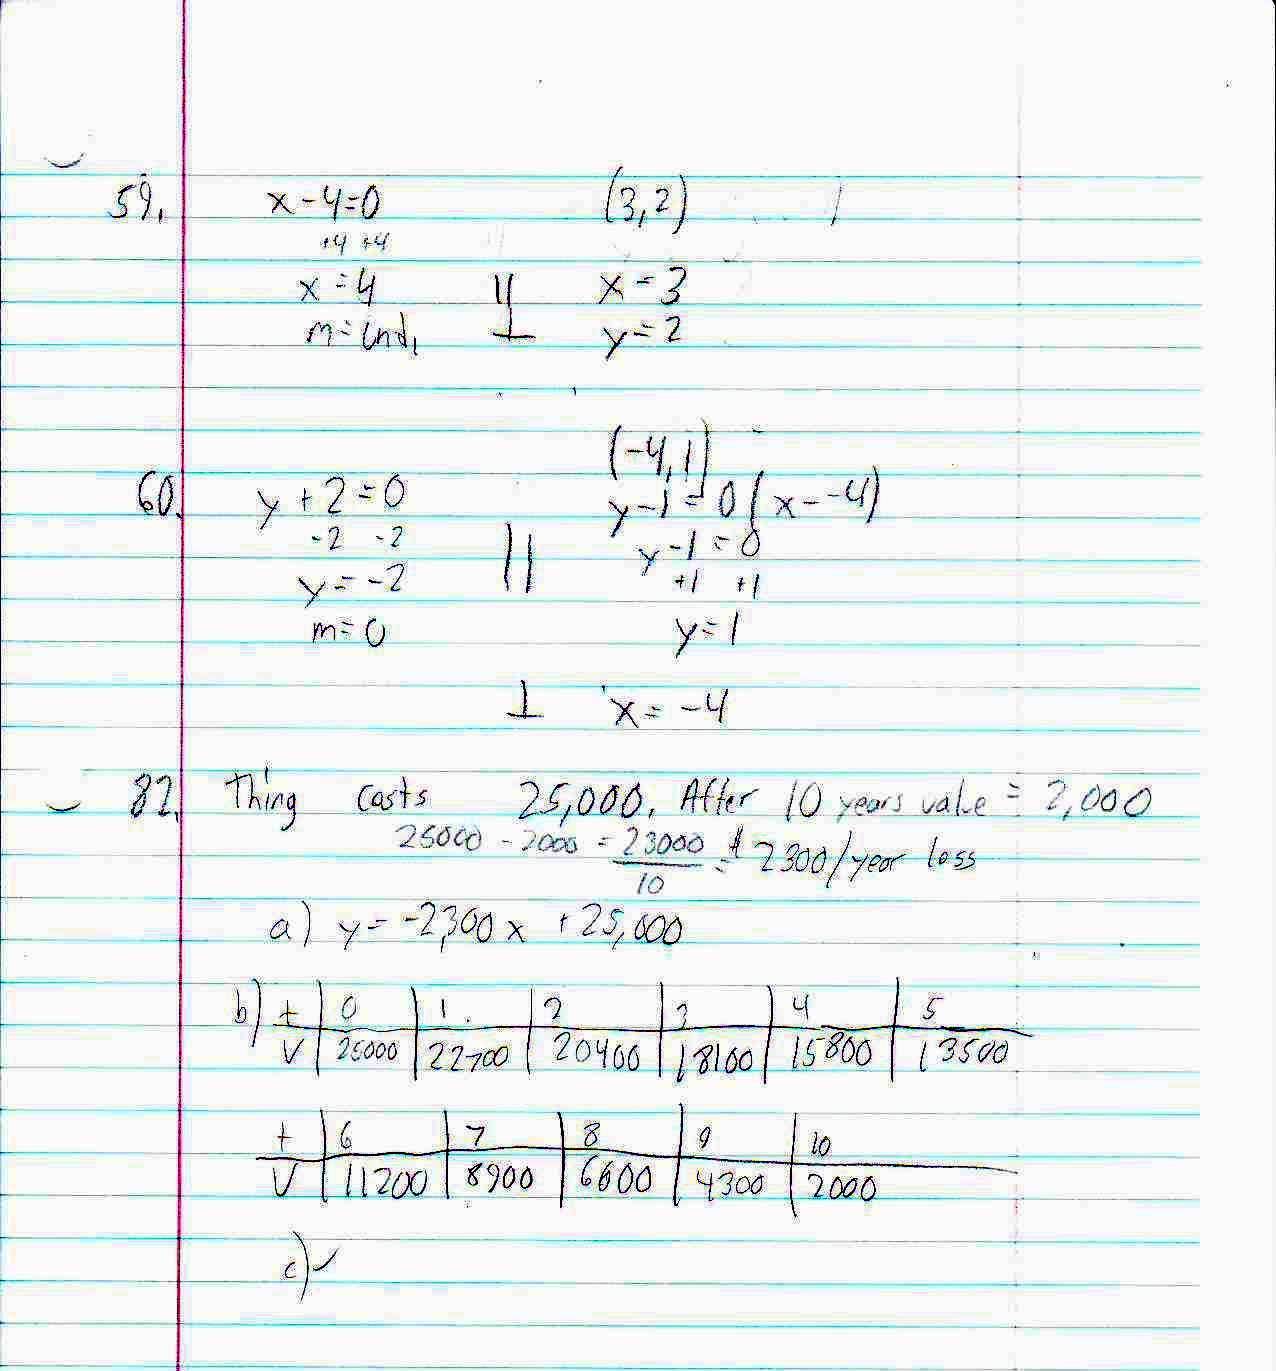 59. x-4=0 (3,2)
+4 +4
x=4 || x=3
m=und. ⊥ y=2
(-4,1)
60. y+2=0 y-1=0(x--4)
-2 -2 || y-1=0
y=-2 +1 +1
m=0 y=1
⊥ x=-4
82. Thing costs 25,000. After 10 years value = 2,000
25000 - 2000 = 23000/10 = $2300/year loss
a) y=-2,300x +25,000
b) t 0 1 2 3 4 5
V 25000 22700 20400 18100 15800 13500
t 6 7 8 9 10
V 11200 8900 6600 4300 2000
c) ✓